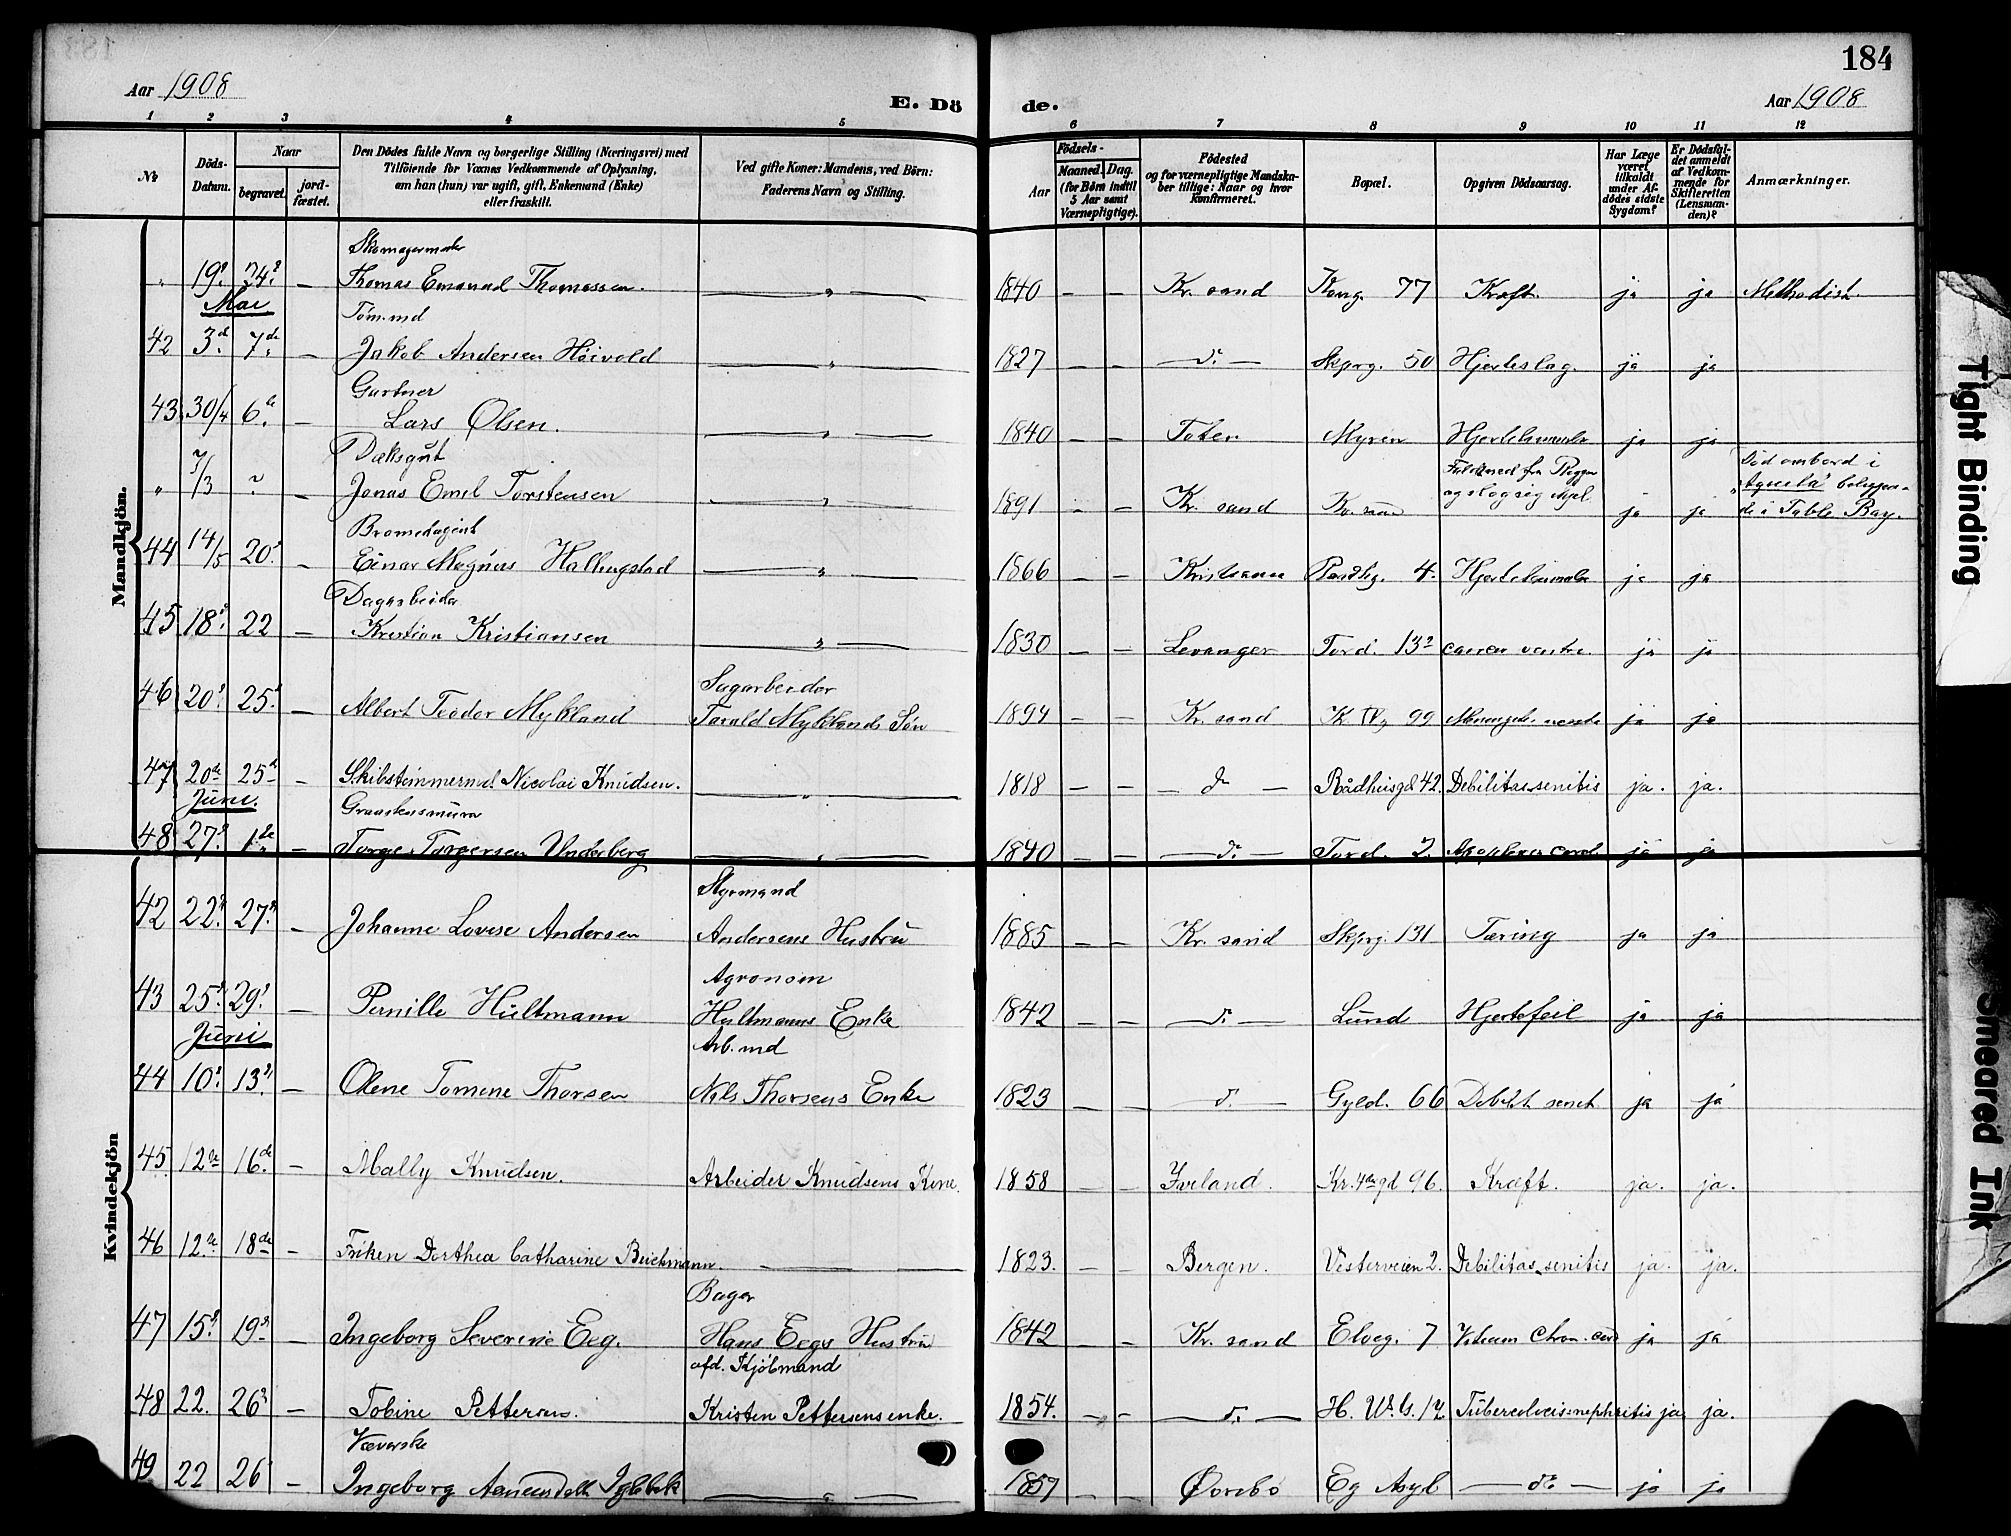 184
Aar 1908
E. Dö
de.
Aar 1908
1 2 3 4 5 6 7 8 9 10 11 12
No
Döds-Datum.
Naar
begravet.
jord-fæstet.
Den Dödes fulde Navn og borgerlige Stilling (Næringsvei) med
Tilföiende for Voxnes Vedkommende af Oplysning,
om han (hun) var ugift, gift, Enkemand (Enke)
eller fraskilt.
Ved gifte Koner: Mandens, ved Börn:
Faderens Navn og Stilling.
Födsels-
Aar
Maaned. Dag.
(for Börn indtil
5 Aar samt
Værnepligtige).
Födested
og for værnepligtige Mandska-
ber tillige: Naar og hvor
konfirmeret.
Bopæl.
Opgiven Dödsaarsag.
Har Læge
været
tilkaldt
under Af-
dödes sidste
Sygdom?
Er Dödsfal-
det anmeldt
af Vedkom-
mende for
Skifteretten
(Lensman-
den)?
Anmærkninger.
Mandkjön.
Skomagermester
" 19 24 — Thomas Emanuel Thomassen. — " — 1840 — — Kr. sand Kong. 77 Kræft. ja ja Methodist.
Mai
Töm.md
42 3de 7de — Jakob Andersen Höivold — " — 1827 — — do Skprg. 50 Hjerteslag. ja ja
Gartner
43 30/4 6te — Lars Olsen. — " — 1840 — — Toten Myren ja ja
Dæksgut
" 7/3 ? — Jonas Emil Torstensen — " — 1891 Kr. sand Kr. sand Faldt ned fra Riggen
og slog sig ihjel ja ja Död ombord i
"Aquila"
de i Table Bay.
44 14/5 20 — Einar Magnus Hallingstad — " — 1866 — — 4. ja ja
Dagarbeider
45 18 22 — Kristian Kristiansen — " — 1830 — — Levanger Tord. 13 ja ja
Sagarbeider
46 20 25 — Albert Teodor Mykland Torald Myklands Sön 1894 — — Kr. sand 99 ja ja
47 20de 25de — Skibstömmermd. Nicolai Knudsen. — " — 1818 — — do Rådhusgd 42. Debilitas senilis ja. ja.
Juni.
48 27 1ste — Torge Torgersen Underberg — " — 1840 — — do Tord. 2. ja ja
Kvindekjön
Styrmand
42 22 27 — Johanne Lovise Andersen Andersens Hustru 1885 — — Kr. sand Skprg. 131 Tæring ja ja
Agronom
43 25 29 — Pernille Hultmann Hultmanns Enke 1842 — — do Lund Hjertefeil ja ja
Juni
Arb.md
44 10 13 — Olene Tomine Thorsen Nils Thorsens Enke 1823 — — do Gyld. 66 Debilit. senil. ja ja
45 12te 16de — Mally Knudsen. Arbeider Knudsens Kone. 1858 — — Iveland. Kr. 4de gd 96. Kræft. ja. ja.
46 12te 18de — Friken Dorthea Catharine Beichmann. — 1823. — — Bergen. Vesterveien 2. Debilitas senilis ja. ja.
Bager
47 15 19 — Ingeborg Severine Eeg. Hans Eegs Hustru 1842 — — Kr. sand Elveg. 7 ja ja
afd. Kjöbmand
48 22. 26 — Tobine Pettersen. Kristen Pettersens enke. 1854. — — do H. W. G. 17. ja. ja.
Væverske
49 22 26 — Ingeborg — " — 1857 — — Øvrebö Eg Asyl do ja ja
Tight Binding
Smeared Ink